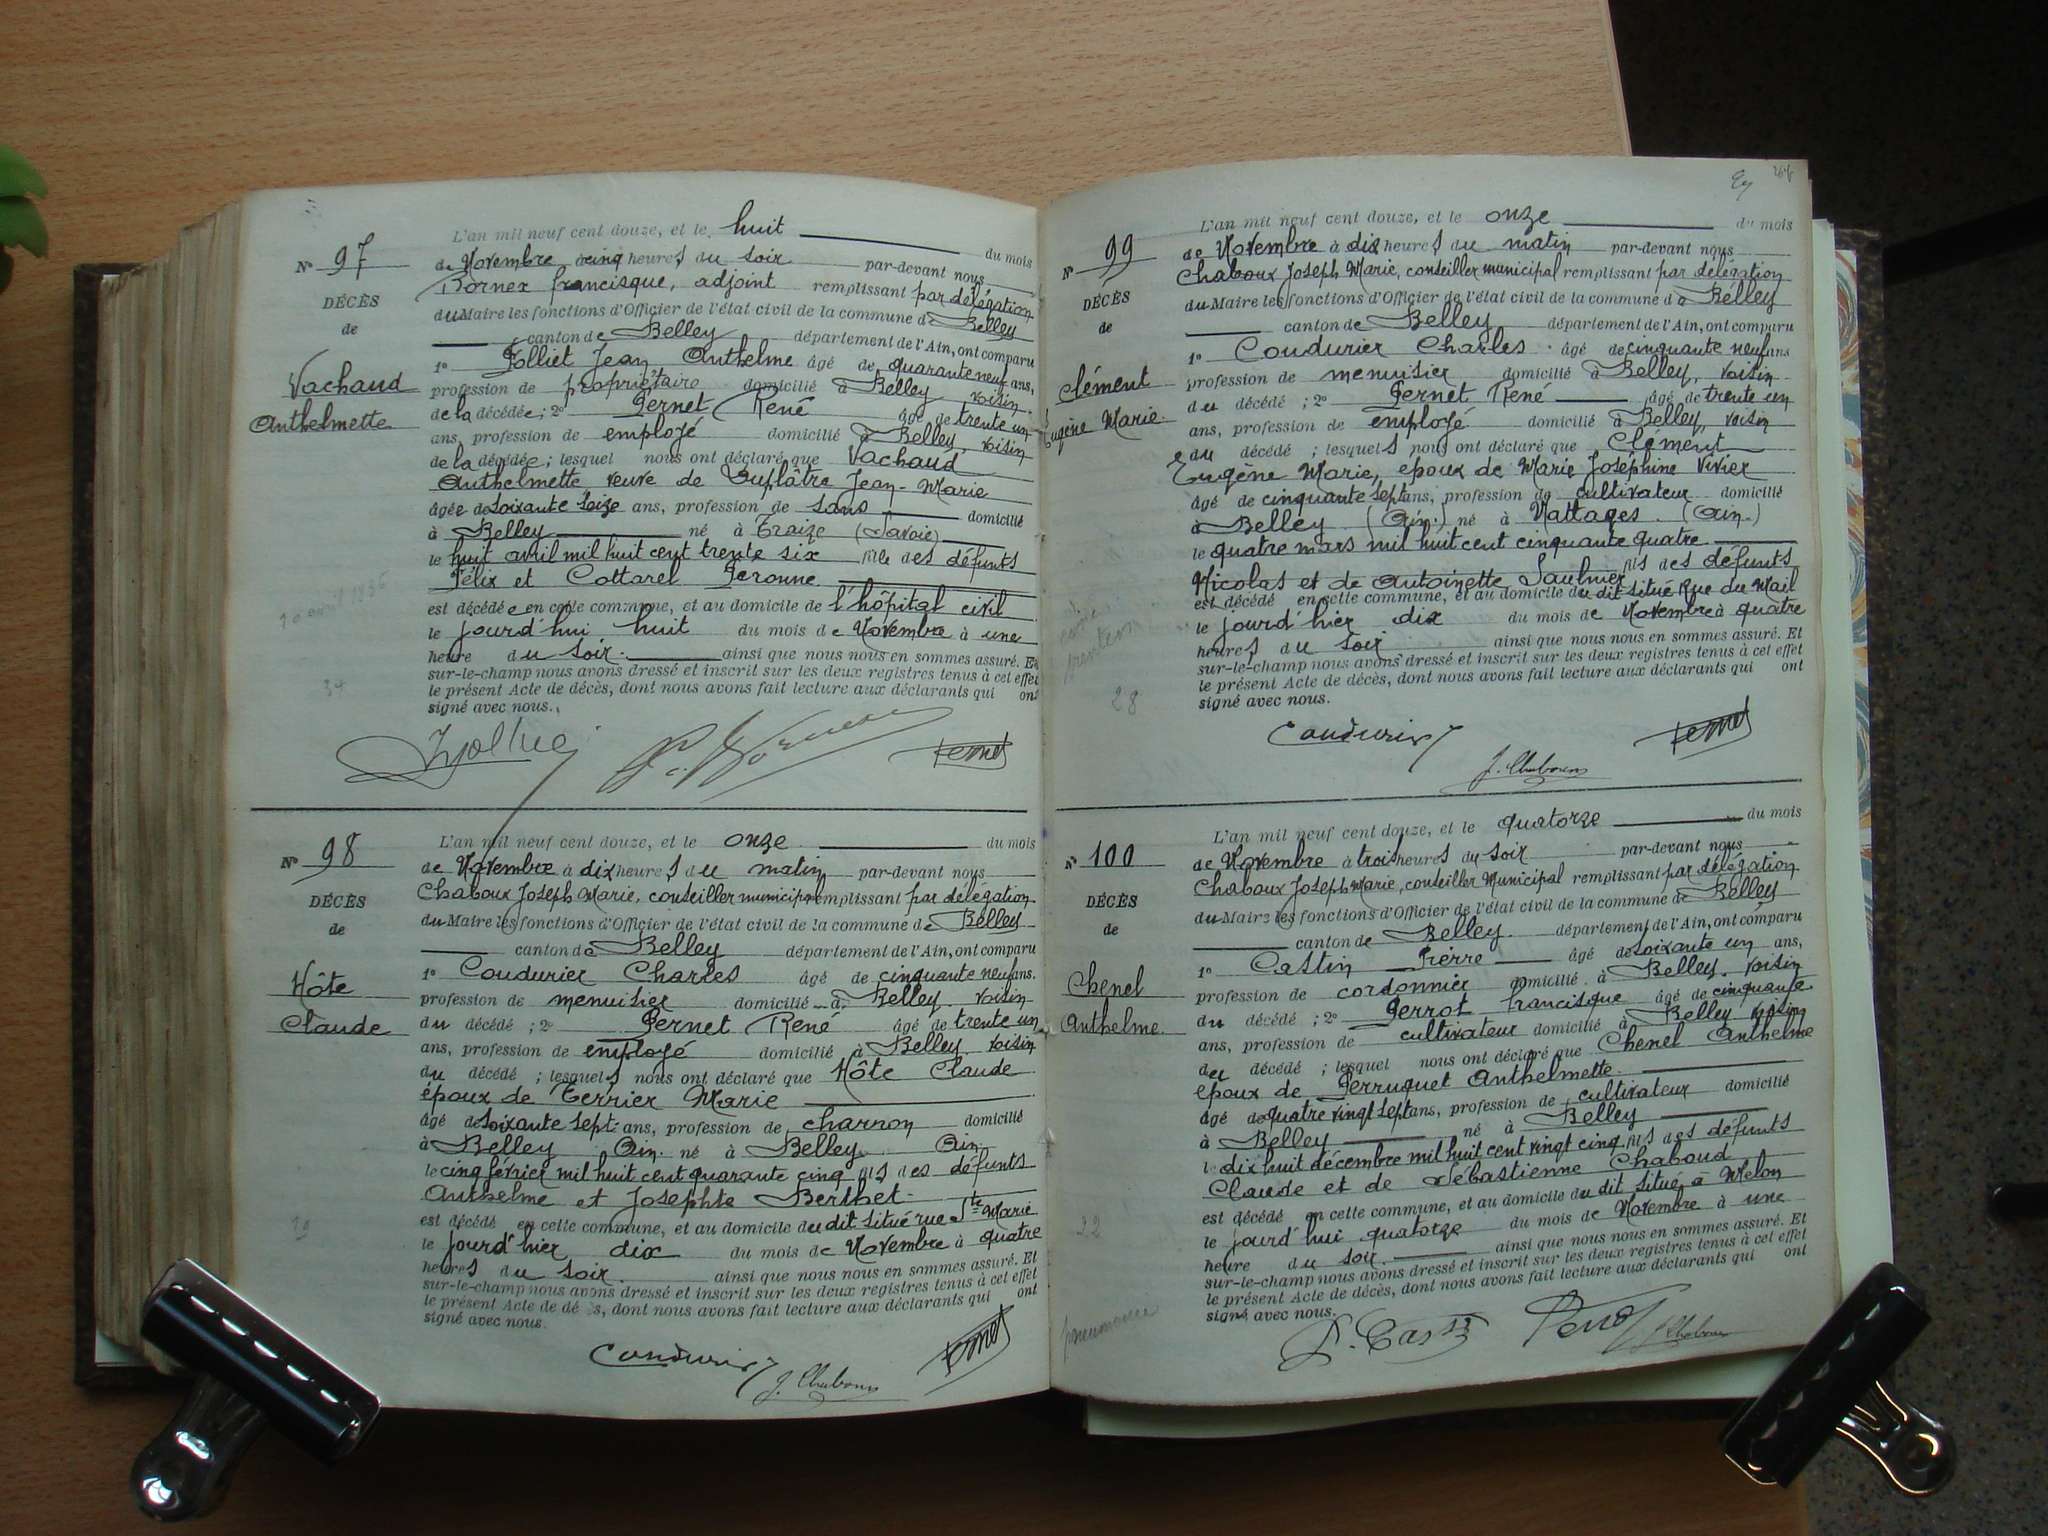 L'an mil neuf cent douze, et le huit du mois
N° 97
de Novembre à cinq heures du soir par-devant nous
Dornex francisque, adjoint remplissant par délégation
DÉCÈS
du Maire les fonctions d'Officier de l'état civil de la commune de Belley
de
canton de Belley département de l'Ain, ont comparu
1° Folliet Jean Anthelme âgé de quarante neuf ans,
Vachaud
profession de propriétaire domicilié à Belley voisin
Anthelmette
de la décédée; 2° Pernet René âgé de trente un
ans, profession de employé domicilié à Belley, voisin
de la décédée; lesquel nous ont déclaré que Vachaud
Anthelmette veuve de Duplâtre Jean-Marie
âgée de soixante seize ans, profession de sans domicilié
à Belley né à Traize (Savoie)
le huit avril mil huit cent trente six fille des défunts
Félix et Cottarel Peronne
20 avril 1836
est décédée en cette commune, et au domicile de l'hôpital civil
le jourd'hui huit du mois de Novembre à une
heure du soir. ainsi que nous nous en sommes assuré. Et
sur-le-champ nous avons dressé et inscrit sur les deux registres tenus à cet effet
34
le présent Acte de décès, dont nous avons fait lecture aux déclarants qui ont
signé avec nous.
Pernet
L'an mil neuf cent douze, et le onze du mois
N° 98
de Novembre à dix heures du matin par-devant nous
Chaboux Joseph Marie, conseiller municipal remplissant par délégation
DÉCÈS
du Maire les fonctions d'Officier de l'état civil de la commune de Belley
de
canton de Belley département de l'Ain, ont comparu
1° Coudurier Charles âgé de cinquante neuf ans.
Hôte
profession de menuisier domicilié à Belley. voisin
Claude
du décédé; 2° Pernet René âgé de trente un
ans, profession de employé domicilié à Belley voisin
du décédé; lesquels nous ont déclaré que Hôte Claude
époux de Terrier Marie
âgé de soixante sept ans, profession de charron domicilié
à Belley Ain né à Belley Ain
le cinq février mil huit cent quarante cinq fils des défunts
Anthelme et Josephte Berthet
est décédé en cette commune, et au domicile du dit situé rue Ste Marie
le jourd'hier dix du mois de Novembre à quatre
heures du soir. ainsi que nous nous en sommes assuré. Et
sur-le-champ nous avons dressé et inscrit sur les deux registres tenus à cet effet
le présent Acte de décès, dont nous avons fait lecture aux déclarants qui ont
signé avec nous.
Coudurier J. Chaboux Pernet
L'an mil neuf cent douze, et le onze du mois
N° 99
de Novembre à dix heures du matin par-devant nous
Chaboux Joseph Marie, conseiller municipal remplissant par délégation
DÉCÈS
du Maire les fonctions d'Officier de l'état civil de la commune de Belley
de
canton de Belley département de l'Ain, ont comparu
1° Coudurier Charles âgé de cinquante neuf ans
Clément
profession de menuisier domicilié à Belley, voisin
Eugène Marie
du décédé; 2° Pernet René âgé de trente un
ans, profession de employé domicilié à Belley, voisin
du décédé; lesquels nous ont déclaré que Clément
Eugène Marie, époux de Marie Joséphine Vivier
âgé de cinquante sept ans, profession de cultivateur domicilié
à Belley (Ain.) né à Nattages (Ain.)
le quatre mars mil huit cent cinquante quatre
Nicolas et de Antoinette Saulnier fils des défunts
est décédé en cette commune, et au domicile du dit situé Rue du Mail
le jourd'hier dix du mois de Novembre à quatre
heures du soir ainsi que nous nous en sommes assuré. Et
sur-le-champ nous avons dressé et inscrit sur les deux registres tenus à cet effet
28
le présent Acte de décès, dont nous avons fait lecture aux déclarants qui ont
signé avec nous.
Coudurier J. Chaboux Pernet
L'an mil neuf cent douze, et le quatorze du mois
N° 100
de Novembre à trois heures du soir par-devant nous
Chaboux Joseph Marie, conseiller Municipal remplissant par délégation
DÉCÈS
du Maire les fonctions d'Officier de l'état civil de la commune de Belley
de
canton de Belley département de l'Ain, ont comparu
1° Castin Pierre âgé de soixante un ans,
Chenel
profession de cordonnier domicilié à Belley. voisin
Anthelme
du décédé; 2° Perrot francisque âgé de cinquante
ans, profession de cultivateur domicilié à Belley voisin
du décédé; lesquel nous ont déclaré que Chenel Anthelme
époux de Perruquet Anthelmette
âgé de quatre vingt sept ans, profession de cultivateur domicilié
à Belley né à Belley
le dix huit décembre mil huit cent vingt cinq fils des défunts
Claude et de Sébastienne Chaboud
22
est décédé en cette commune, et au domicile du dit situé à Melon
le jourd'hui quatorze du mois de Novembre à une
heure du soir ainsi que nous nous en sommes assuré. Et
sur-le-champ nous avons dressé et inscrit sur les deux registres tenus à cet effet
le présent Acte de décès, dont nous avons fait lecture aux déclarants qui ont
pneumonie
signé avec nous.
P. Castin Perrot J. Chaboux